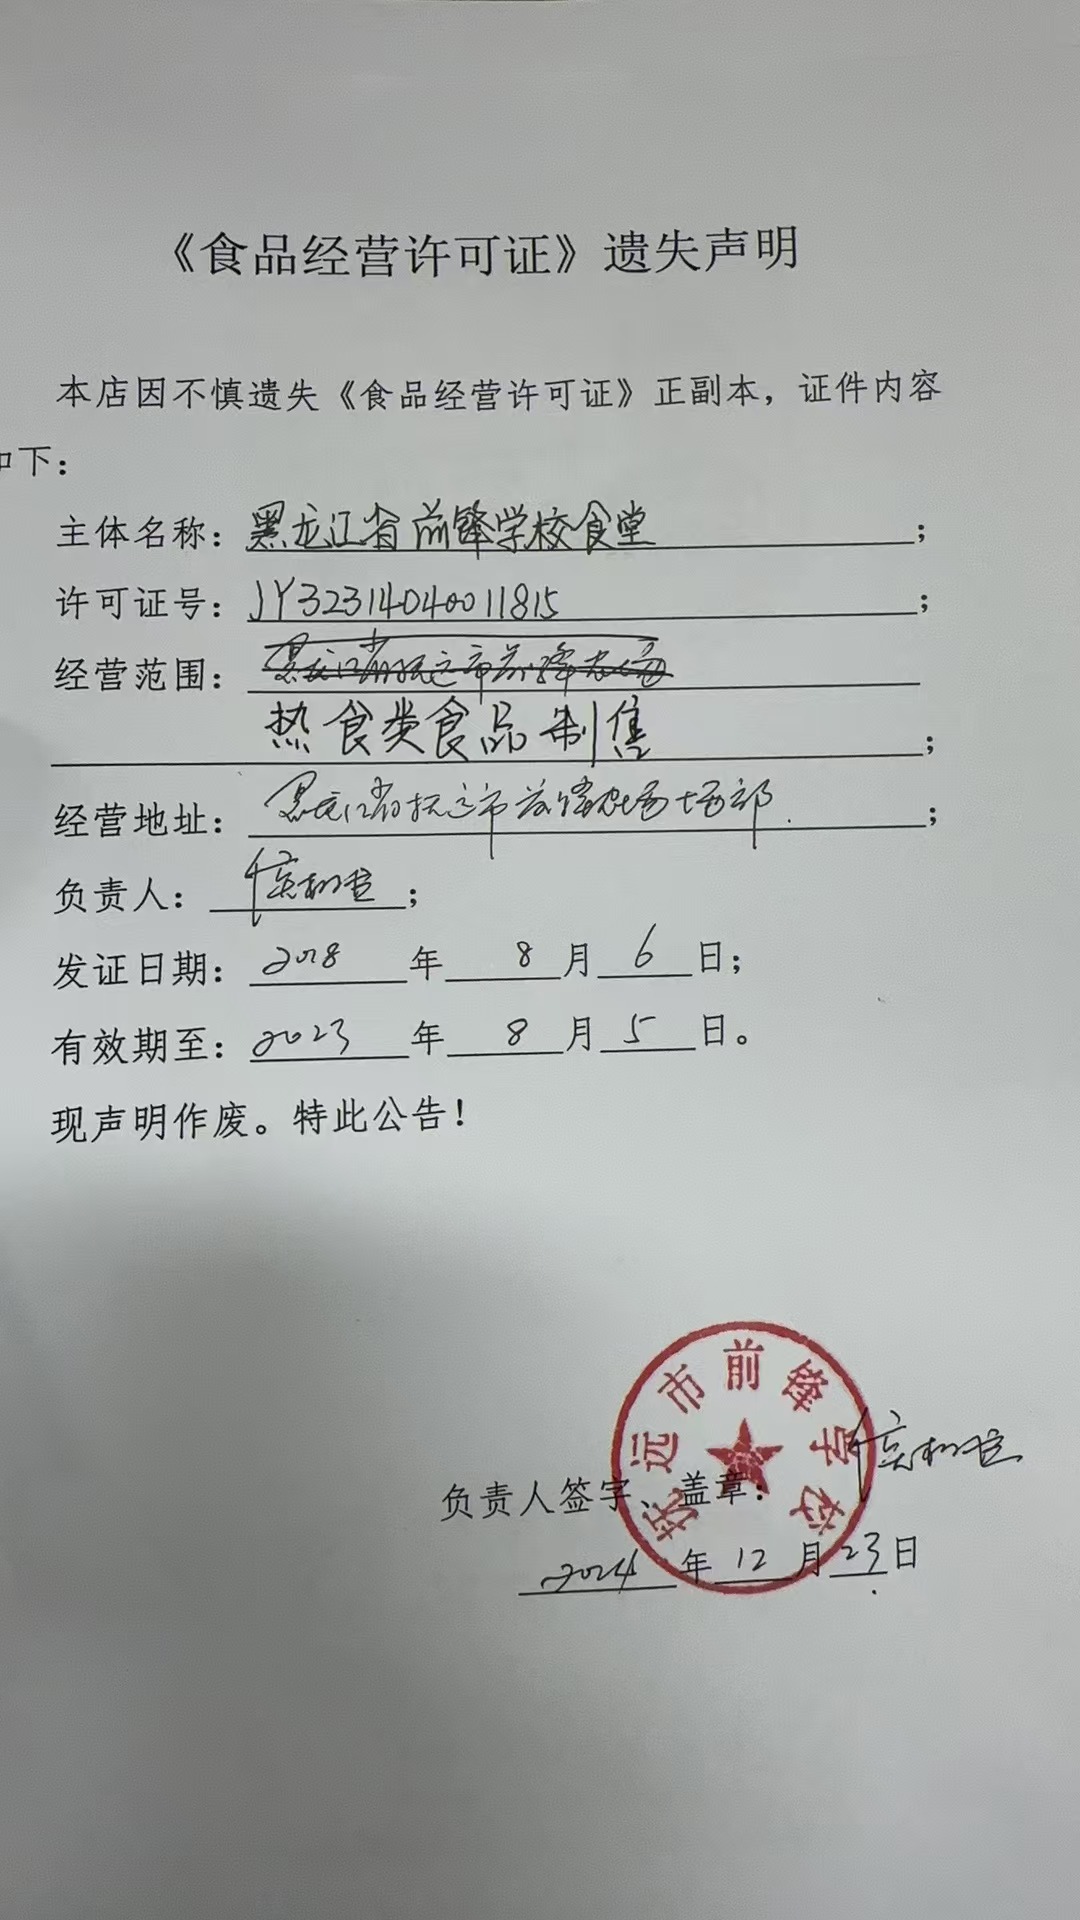 《食品经营许可证》遗失声明
本店因不慎遗失《食品经营许可证》正副本，证件内容
如下：
主体名称：黑龙江省前锋学校食堂；
许可证号：JY32314040011815；
经营范围：黑龙江省抚远市前锋农场
热食类食品制售；
经营地址：黑龙江省抚远市前锋农场场部；
负责人：；
发证日期：2018年8月6日；
有效期至：2023年8月5日。
现声明作废。特此公告！
抚远市前锋学校
负责人签字、盖章：
2024年12月23日